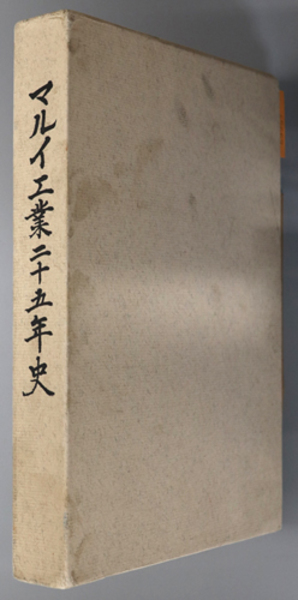 マルイ工業二十五年史